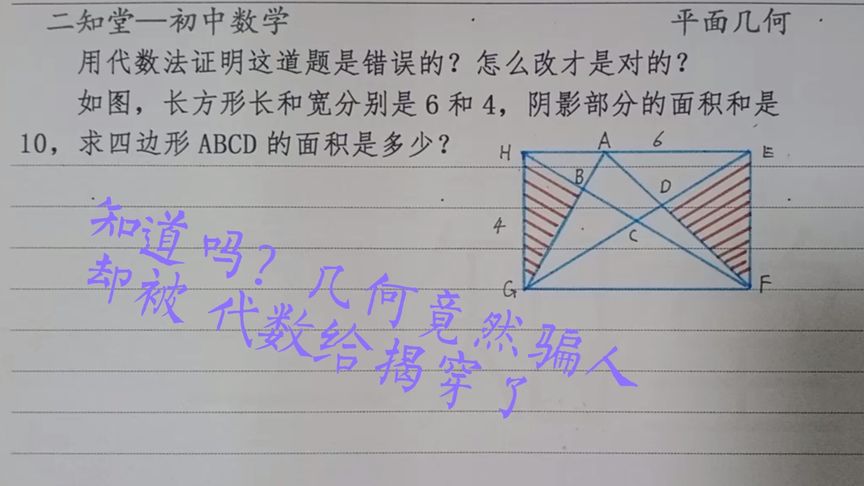 二知堂—初中数学 平面几何
用代数法证明这道题是错误的？怎么改才是对的？
如图，长方形长和宽分别是6和4，阴影部分的面积和是
10，求四边形ABCD的面积是多少？
H A 6 E
B D
4 C
G F
知道吗？几何竟然骗人
却被代数给揭穿了